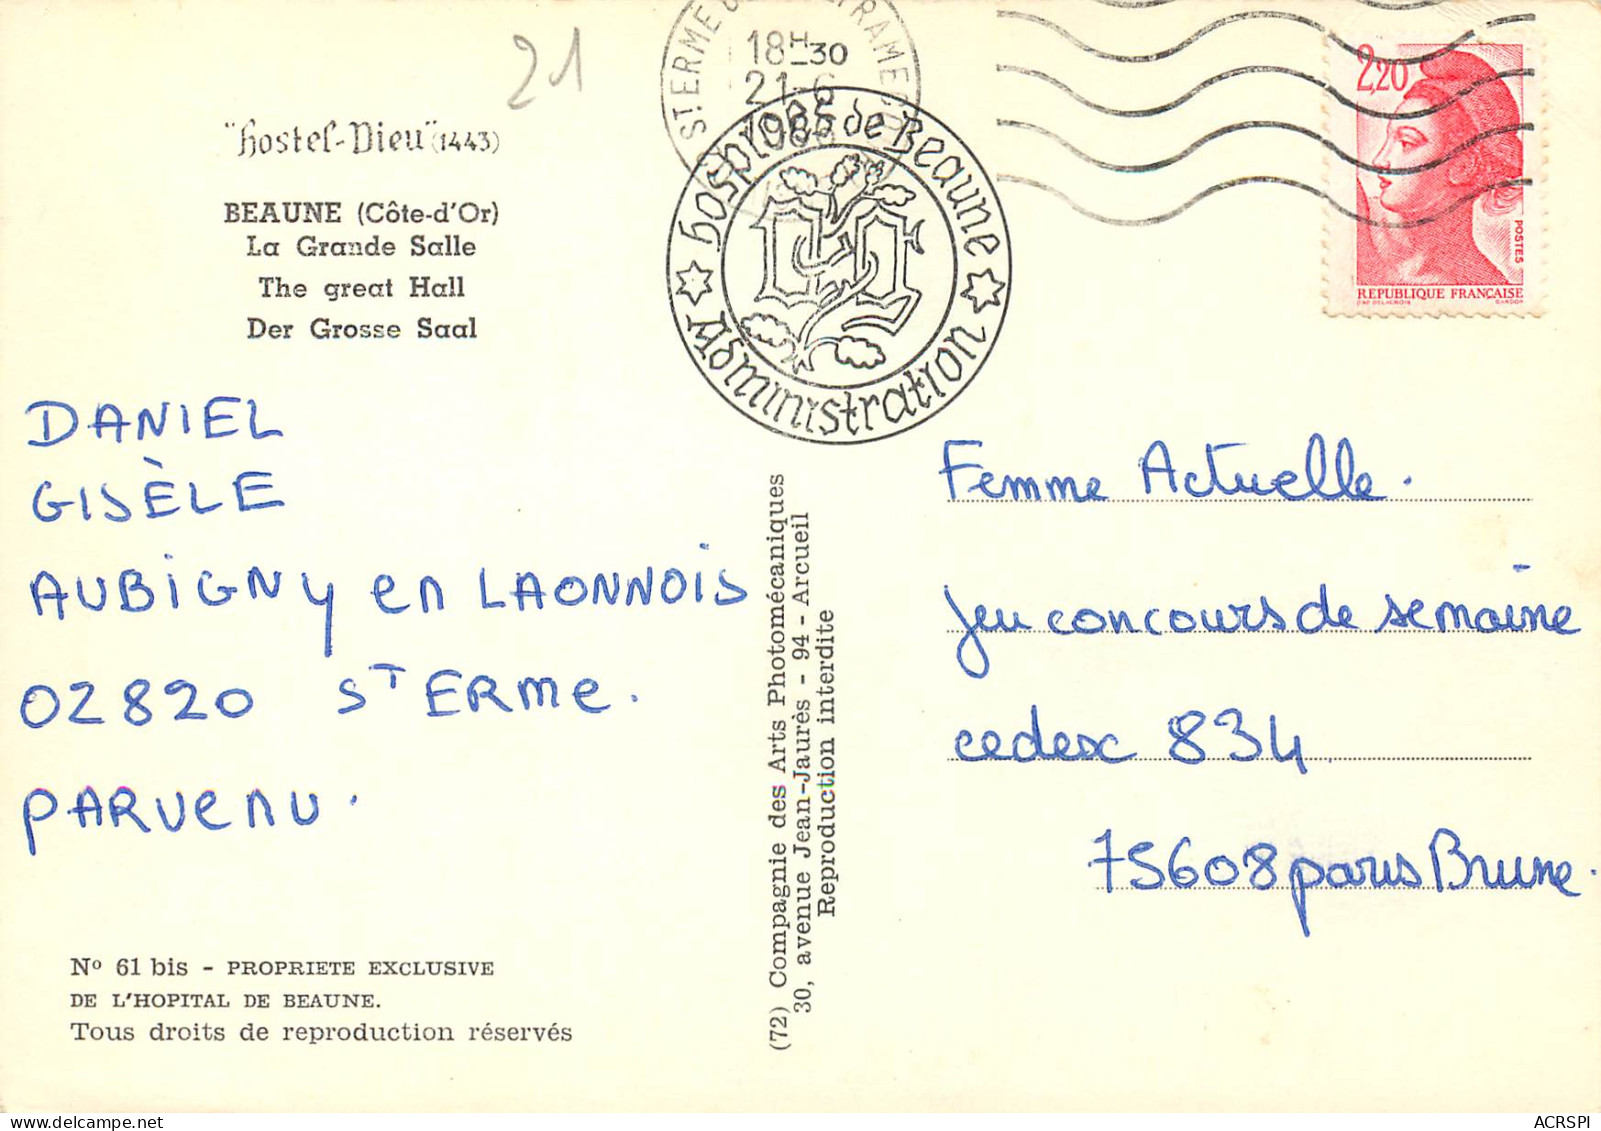 21
"hostel-Dieu" (1443)
BEAUNE (Côte-d'Or)
La Grande Salle
The great Hall
Der Grosse Saal
18H-30
21-6
hospices de Beaune
Administration
2,20
POSTES
REPUBLIQUE FRANÇAISE
DANIEL
GISÈLE
AUBIGNY en LAONNOIS
02820 ST ERme.
PARVENU.
Femme Actuelle.
Jeu concours de semaine
cedex 834
75608 paris Brune.
(72) Compagnie des Arts Photomécaniques
30, avenue Jean-Jaurès - 94 - Arcueil
Reproduction interdite
Nº 61 bis - PROPRIETE EXCLUSIVE
DE L'HOPITAL DE BEAUNE.
Tous droits de reproduction réservés
ACRSPI